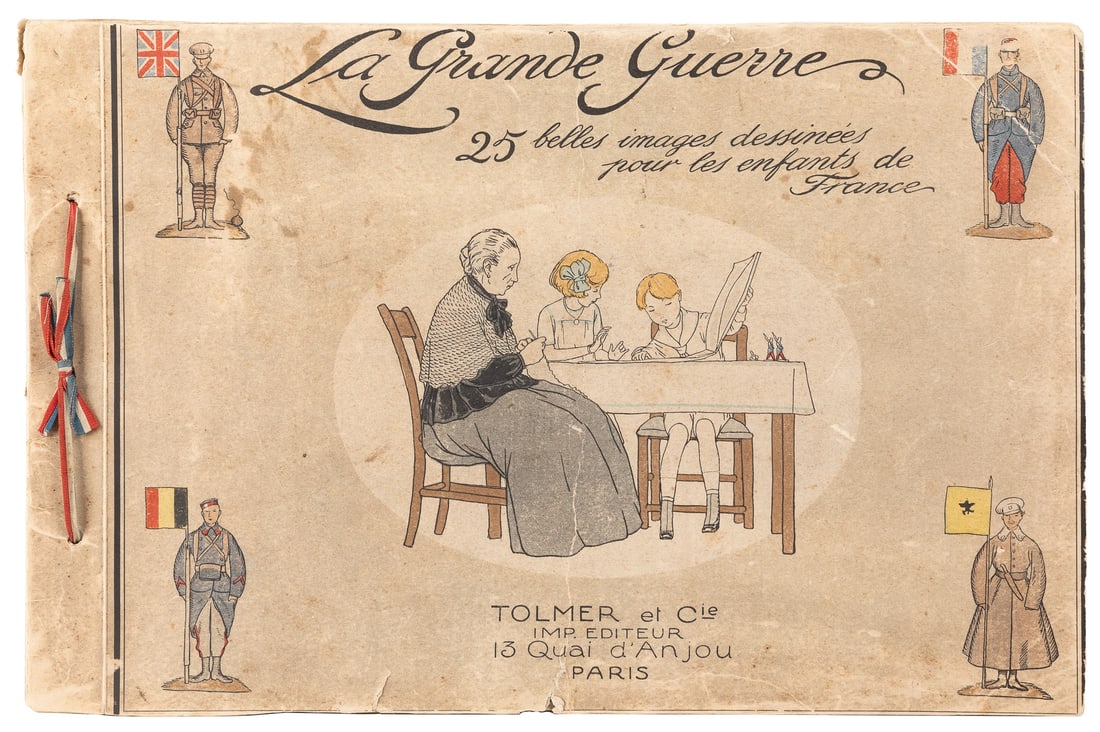 La Grande Guerre
25 belles images dessinées
pour les enfants de
France
TOLMER et Cie
IMP. EDITEUR
13 Quai d'Anjou
PARIS